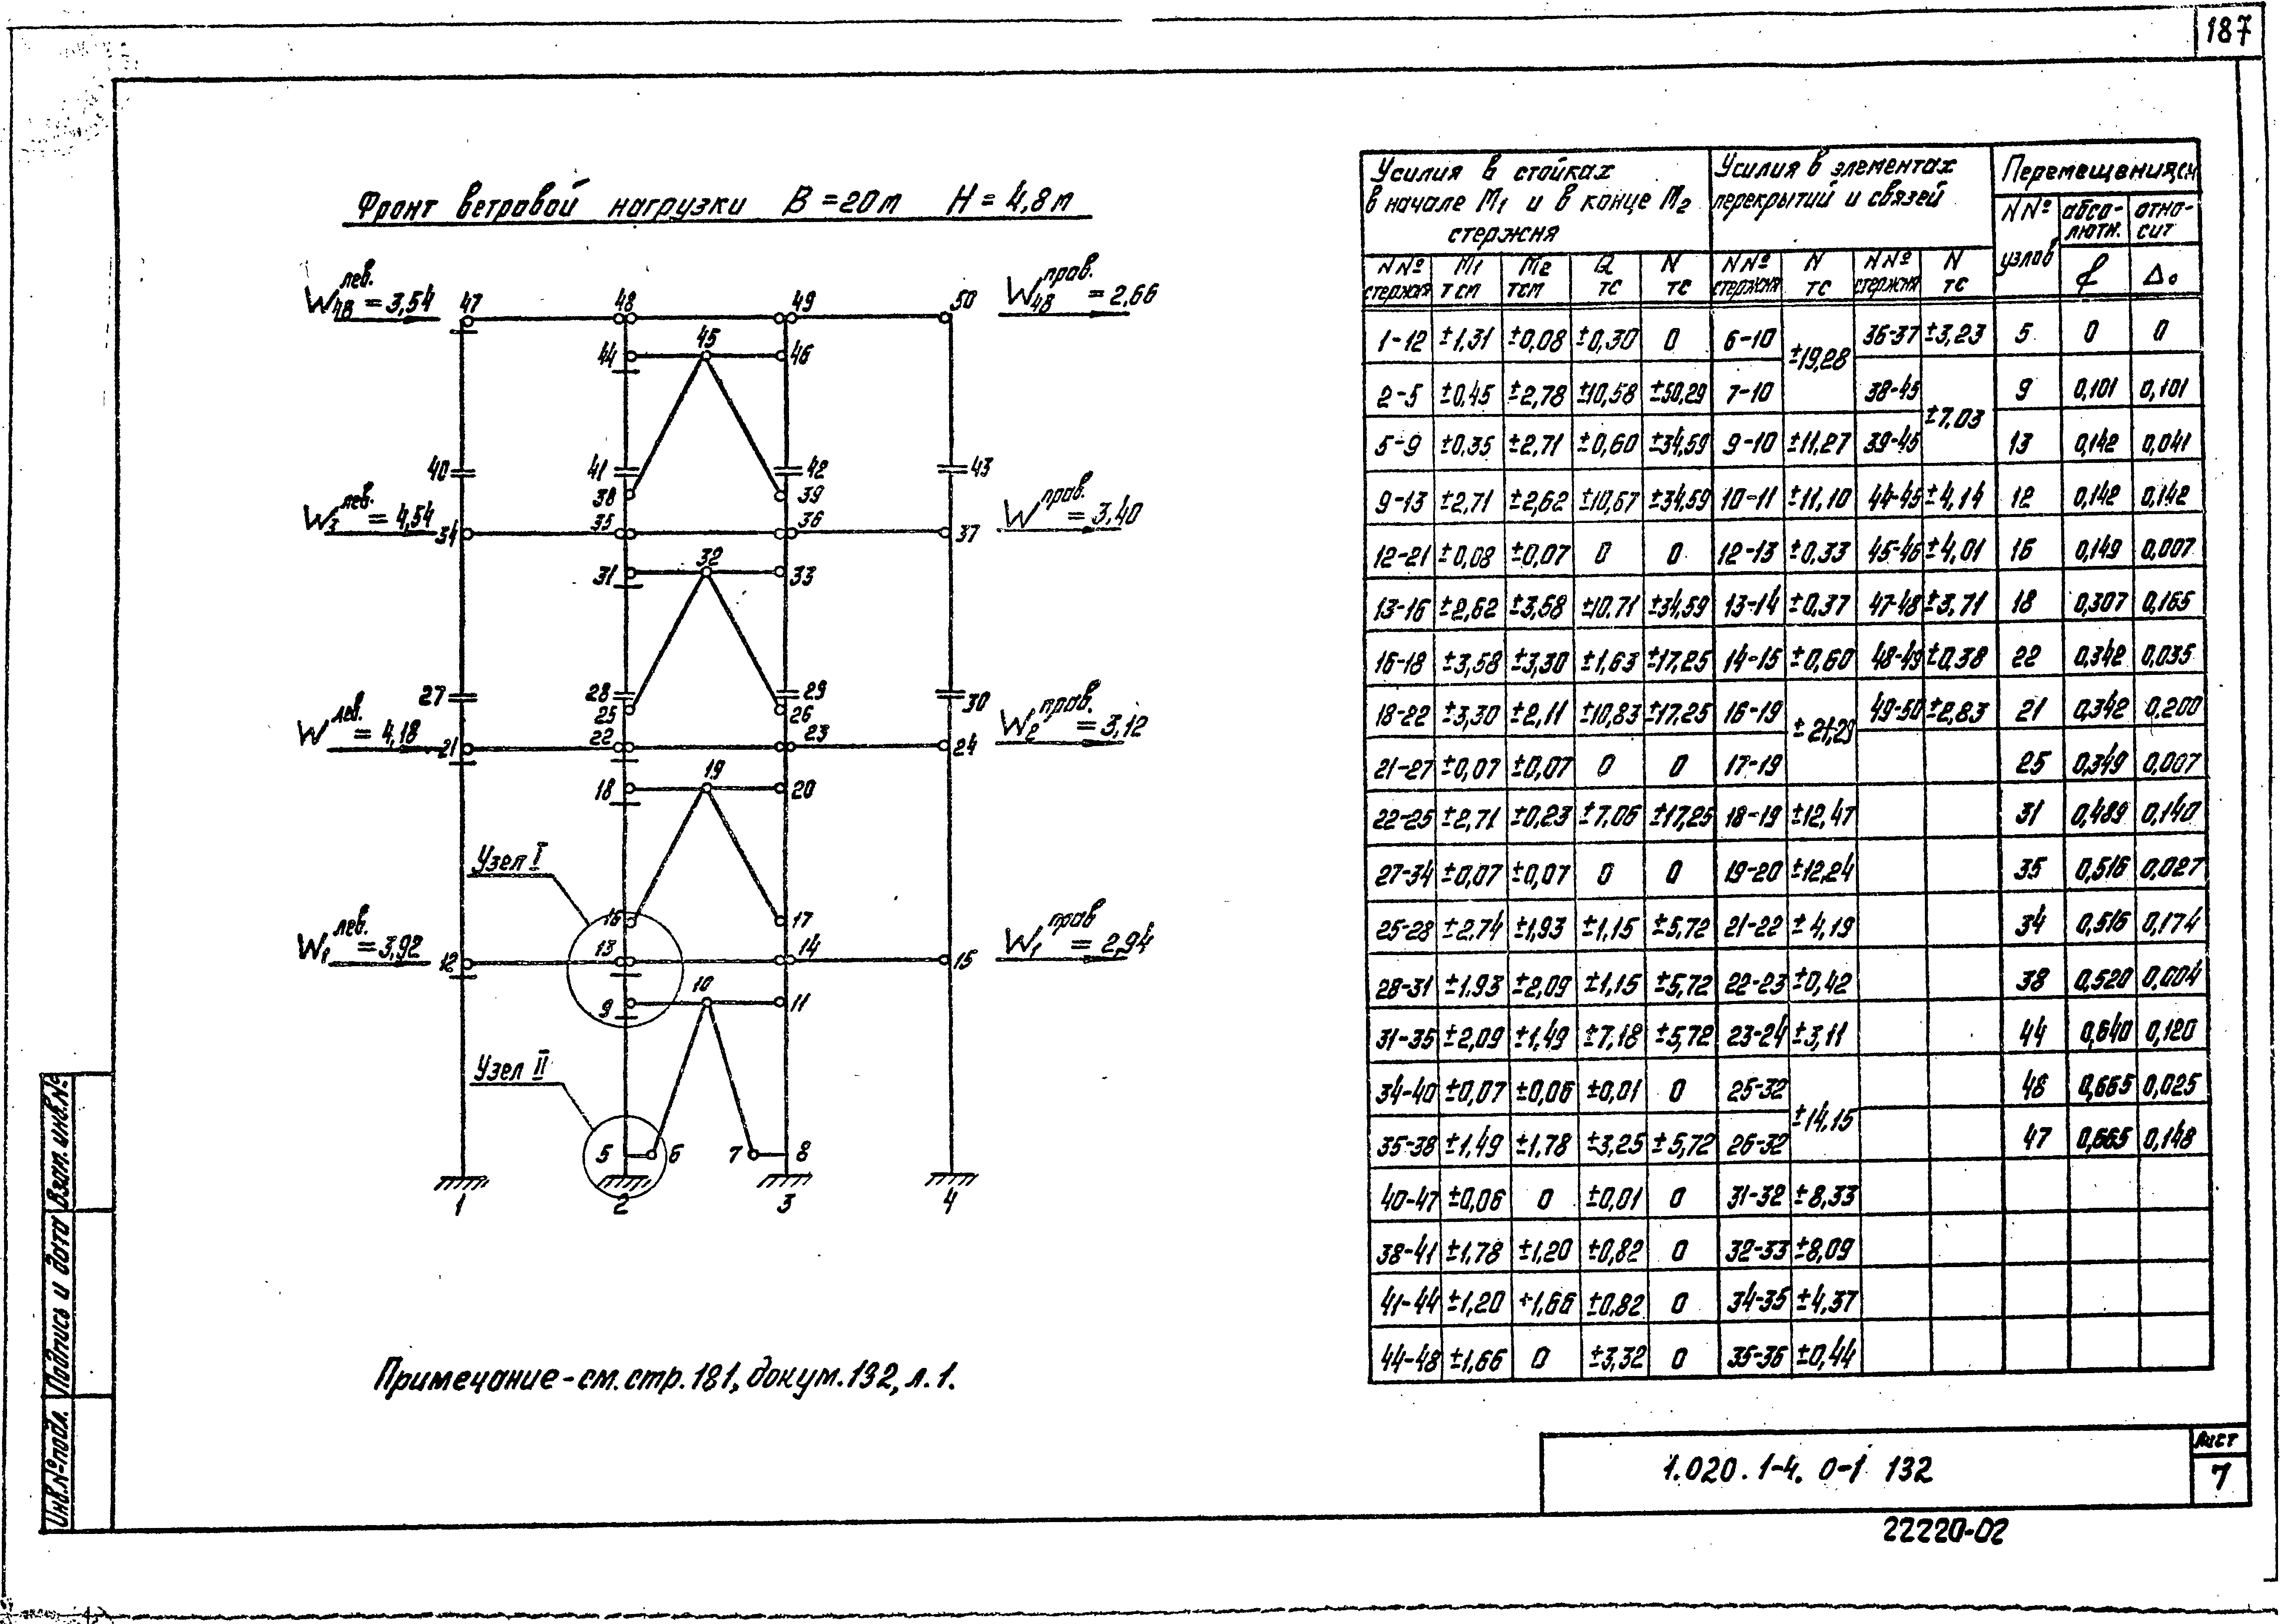 187
Фронт ветровой нагрузки B=20м H=4,8м
W48 лев. = 3,54
47
48
49
50
W48 прав. = 2,66
44
45
46
40
41
42
43
38
39
W3 лев. = 4,54
34
35
36
37
W прав. = 3,40
31
32
33
27
28
29
30
25
26
W лев. = 4,18
21
22
23
24
W2 прав. = 3,12
18
19
20
Узел I
16
17
W1 лев. = 3,92
12
13
14
15
W1 прав = 2,94
9
10
11
Узел II
5
6
7
8
1
2
3
4
Примечание - см. стр. 181, докум. 132, л. 1.
Усилия в стойках в начале M1 и в конце M2 стержня
Усилия в элементах перекрытий и связей
Перемещения, см
N№ стержня M1 тсм M2 тсм Q тс N тс N№ стержня N тс N№ стержня N тс N№ узлов абсолютн. f относит Δ0
1-12 ±1,31 ±0,08 ±0,30 0 6-10 ±19,28 36-37 ±3,23 5 0 0
2-5 ±0,45 ±2,78 ±10,58 ±50,29 7-10 38-45 ±7,03 9 0,101 0,101
5-9 ±0,35 ±2,71 ±0,60 ±34,59 9-10 ±11,27 39-45 13 0,142 0,041
9-13 ±2,71 ±2,62 ±10,67 ±34,59 10-11 ±11,10 44-45 ±4,14 12 0,142 0,142
12-21 ±0,08 ±0,07 0 0 12-13 ±0,33 45-46 ±4,01 16 0,149 0,007
13-16 ±2,62 ±3,58 ±10,71 ±34,59 13-14 ±0,37 47-48 ±3,71 18 0,307 0,165
16-18 ±3,58 ±3,30 ±1,63 ±17,25 14-15 ±0,60 48-49 ±0,38 22 0,342 0,035
18-22 ±3,30 ±2,11 ±10,83 ±17,25 16-19 ±21,29 49-50 ±2,83 21 0,342 0,200
21-27 ±0,07 ±0,07 0 0 17-19 25 0,349 0,007
22-25 ±2,71 ±0,23 ±7,06 ±17,25 18-19 ±12,47 31 0,489 0,140
27-34 ±0,07 ±0,07 0 0 19-20 ±12,24 35 0,516 0,027
25-28 ±2,74 ±1,93 ±1,15 ±5,72 21-22 ±4,19 34 0,516 0,174
28-31 ±1,93 ±2,09 ±1,15 ±5,72 22-23 ±0,42 38 0,520 0,004
31-35 ±2,09 ±1,49 ±7,18 ±5,72 23-24 ±3,11 44 0,640 0,120
34-40 ±0,07 ±0,06 ±0,01 0 25-32 ±14,15 48 0,665 0,025
35-38 ±1,49 ±1,78 ±3,25 ±5,72 26-32 47 0,665 0,148
40-47 ±0,06 0 ±0,01 0 31-32 ±8,33
38-41 ±1,78 ±1,20 ±0,82 0 32-33 ±8,09
41-44 ±1,20 ±1,66 ±0,82 0 34-35 ±4,37
44-48 ±1,66 0 ±3,32 0 35-36 ±0,44
Инв.№подл. Подпись и дата Взам. инв.№
1.020.1-4. 0-1 132
Лист
7
22220-02